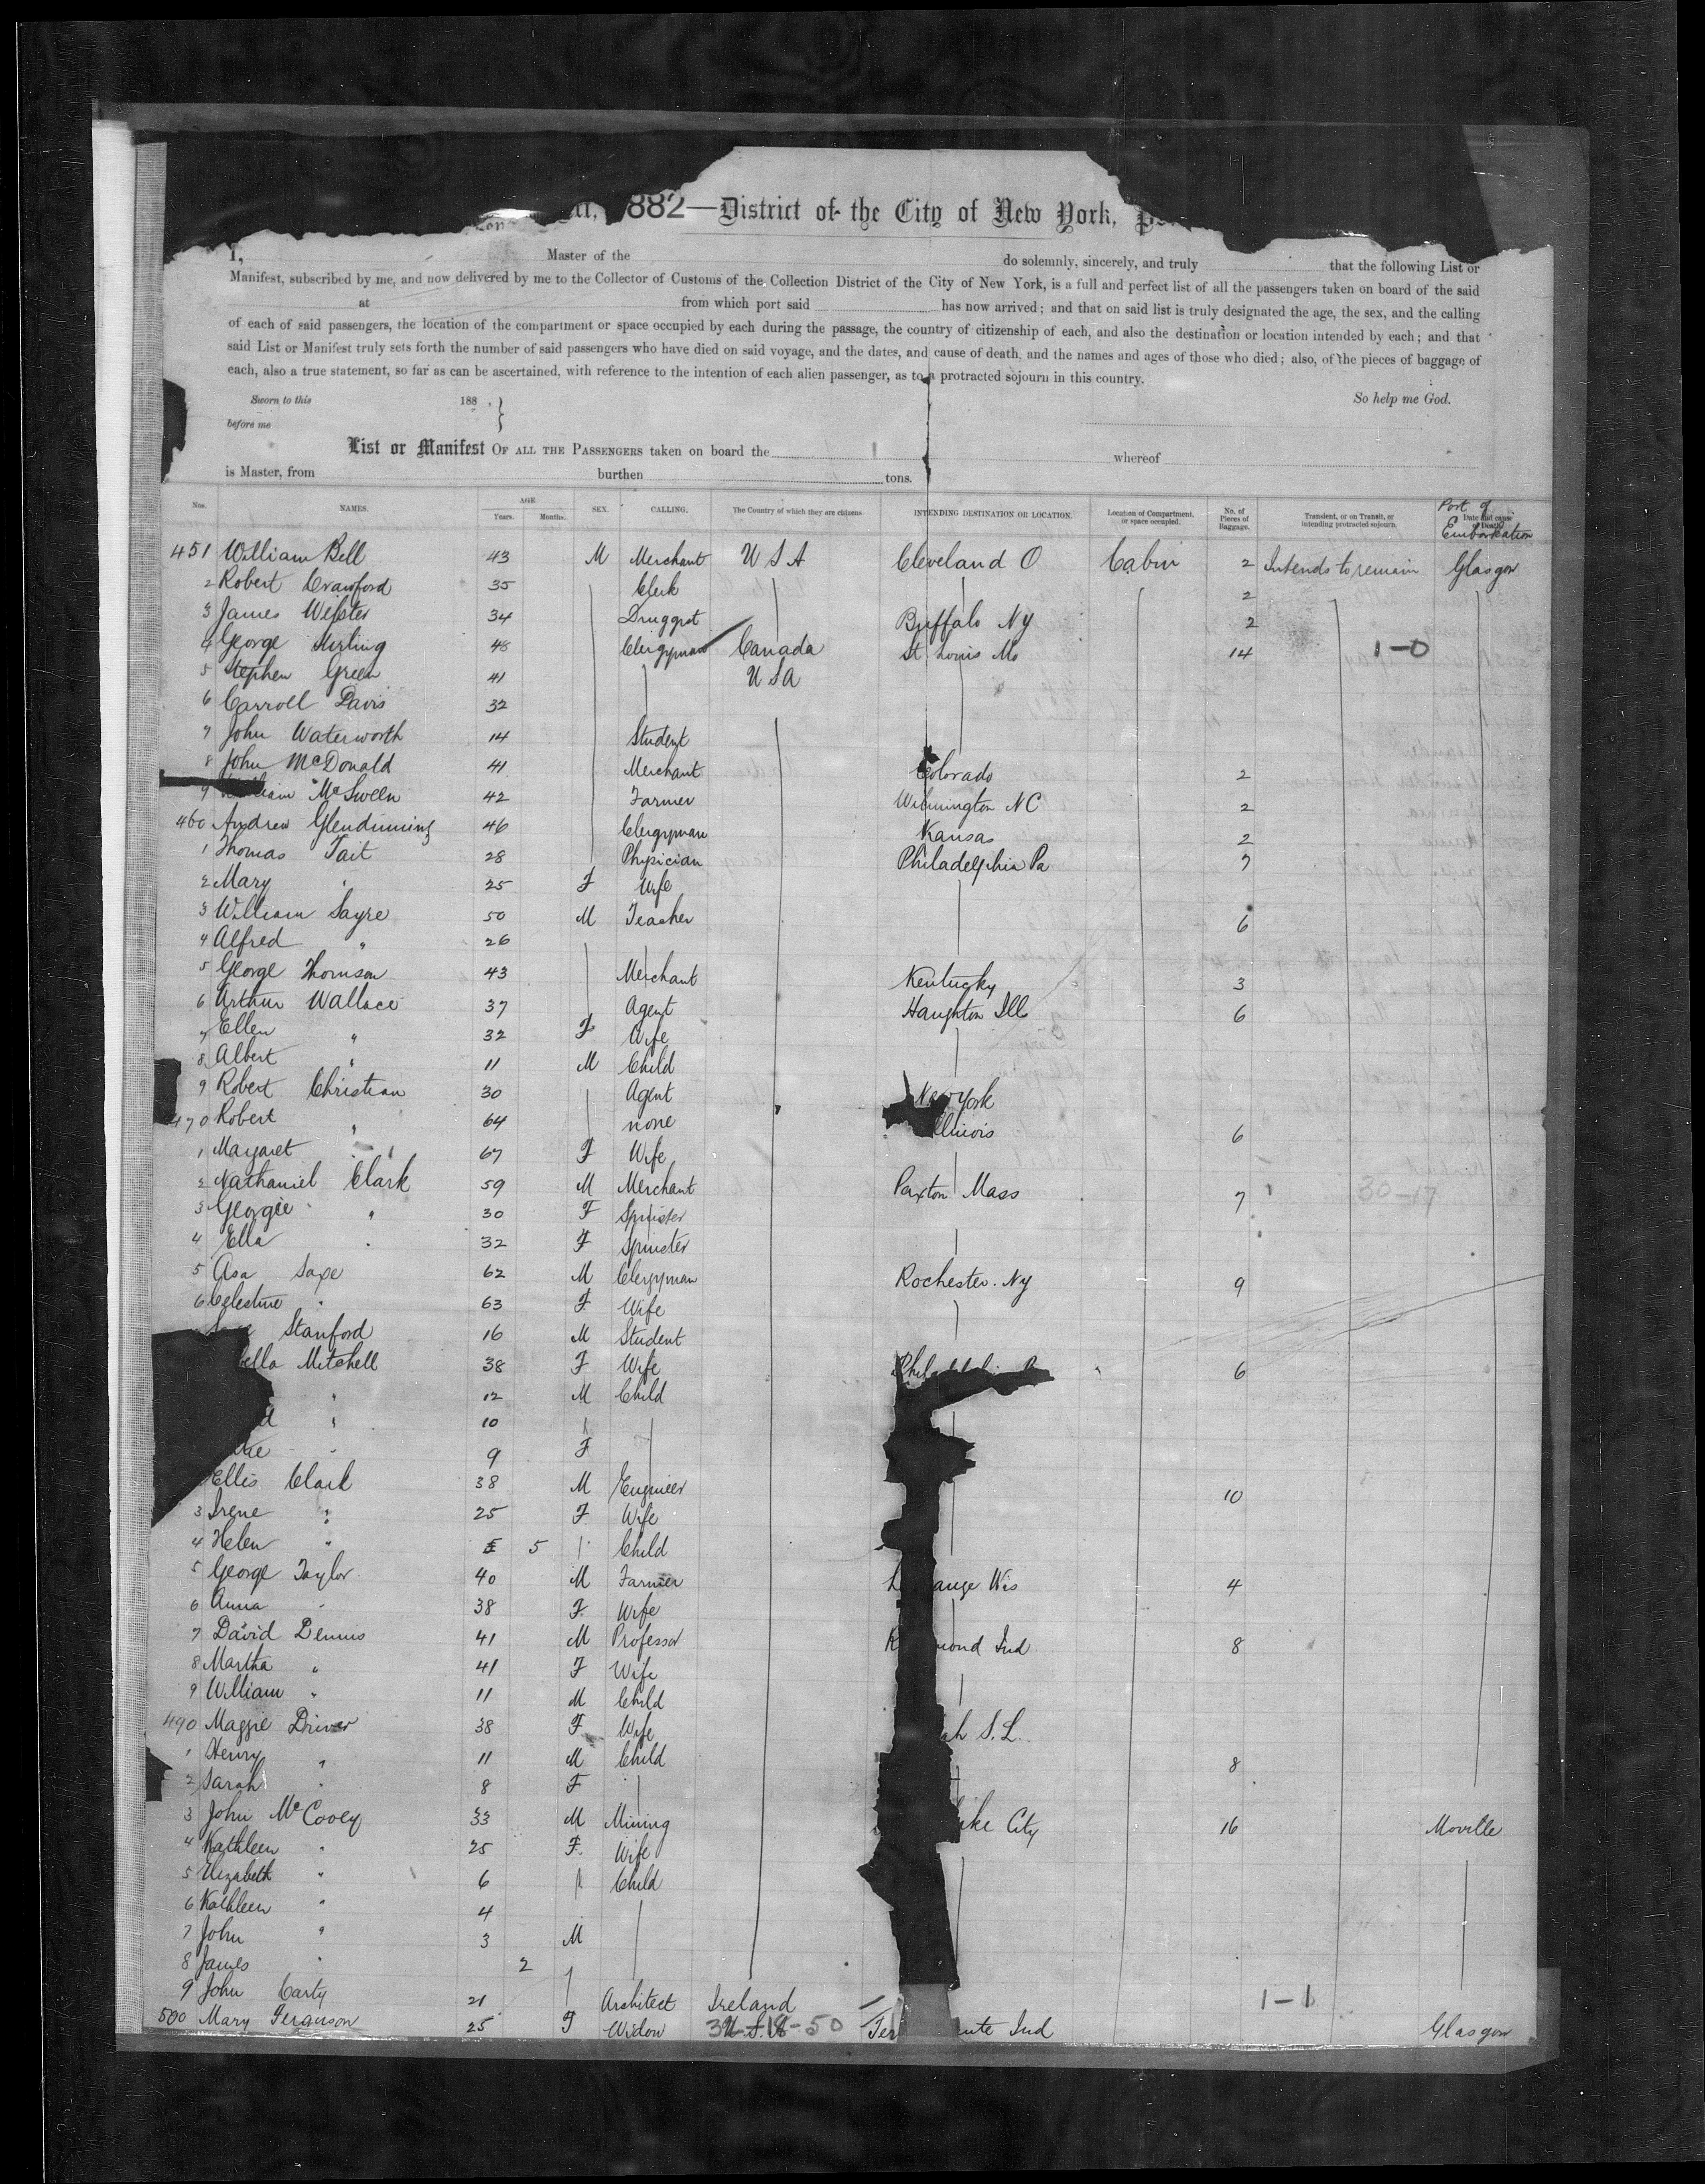 882—District of the City of New York,
I, Master of the do solemnly, sincerely, and truly that the following List or
Manifest, subscribed by me, and now delivered by me to the Collector of Customs of the Collection District of the City of New York, is a full and perfect list of all the passengers taken on board of the said
at from which port said has now arrived; and that on said list is truly designated the age, the sex, and the calling
of each of said passengers, the location of the compartment or space occupied by each during the passage, the country of citizenship of each, and also the destination or location intended by each; and that
said List or Manifest truly sets forth the number of said passengers who have died on said voyage, and the dates, and cause of death, and the names and ages of those who died; also, of the pieces of baggage of
each, also a true statement, so far as can be ascertained, with reference to the intention of each alien passenger, as to a protracted sojourn in this country.
Sworn to this 188 So help me God.
before me
List or Manifest OF ALL THE PASSENGERS taken on board the whereof
is Master, from burthen tons.
Nos. NAMES. AGE Years. Months. SEX. CALLING. The Country of which they are citizens. INTENDING DESTINATION OR LOCATION. Location of Compartment, or space occupied. No. of Pieces of Baggage. Transient, or on Transit, or intending protracted sojourn. Date and cause of Death. Port of Embarkation
451 William Bell 43 M Merchant U S A Cleveland O Cabin 2 Intends to remain Glasgow
2 Robert Crawford 35 Clerk 2
3 James Webster 34 Druggist Buffalo NY 2
4 George Stirling 48 Clergyman Canada St Louis Mo 14 1-0
5 Stephen Green 41 U S A
6 Carroll Davis 32
7 John Waterworth 14 Student
8 John McDonald 41 Merchant Colorado 2
9 William McSween 42 Farmer Wilmington NC 2
460 Andrew Glendinning 46 Clergyman Kansas 2
1 Thomas Tait 28 Physician Philadelphia Pa 7
2 Mary " 25 F Wife
3 William Sayre 50 M Teacher 6
4 Alfred " 26
5 George Thomson 43 Merchant Kentucky 3
6 Arthur Wallace 37 Agent Haughton Ill 6
7 Ellen " 32 F Wife
8 Albert " 11 M Child
9 Robert Christian 30 Agent New York
470 Robert " 64 none Illinois 6
1 Margaret " 67 F Wife
2 Nathaniel Clark 59 M Merchant Paxton Mass 7 30-17
3 Georgie " 30 F Spinster
4 Ella " 32 F Spinster
5 Asa Saxe 62 M Clergyman Rochester. NY 9
6 Celestine " 63 F Wife
Stanford 16 M Student
bella Mitchell 38 F Wife Philadelphia Pa 6
" 12 M Child
d " 10
" 9 F
Ellis Clark 38 M Engineer 10
3 Irene " 25 F Wife
4 Helen " 5 Child
5 George Taylor 40 M Farmer L ange Wis 4
6 Anna " 38 F Wife
7 David Dennis 41 M Professor R mond Ind 8
8 Martha " 41 F Wife
9 William " 11 M Child
490 Maggie Driver 38 F Wife ah S. L.
1 Henry " 11 M Child 8
2 Sarah " 8 F
3 John McCooey 33 M Mining ake City 16 Moville
4 Kathleen " 25 F Wife
5 Elizabeth " 6 Child
6 Kathleen " 4
7 John " 3 M
8 James " 2
9 John Carty 21 Architect Ireland 1-1
500 Mary Ferguson 25 F Widow U.S.A Ter ute Ind Glasgow